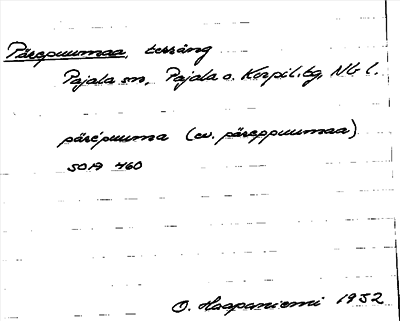 Pärepuumaa, terräng
Pajala sn, Pajala o. Korpil. tg, Nb l.
pärépuuma (ev. päreppuumaa)
SOA 460
O. Haapaniemi 1952